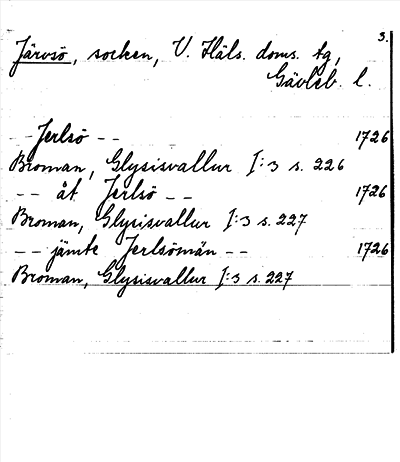 3.
Järvsö, socken, V. Häls. doms. tg,
Gävleb. l.
-- Jerlsö -- 1726
Broman, Glysisvallur I:3 s. 226
-- åt Jerlsö -- 1726
Broman, Glysisvallur I:3 s. 227
-- jämte Jerlsömän -- 1726
Broman, Glysisvallur I:3 s. 227